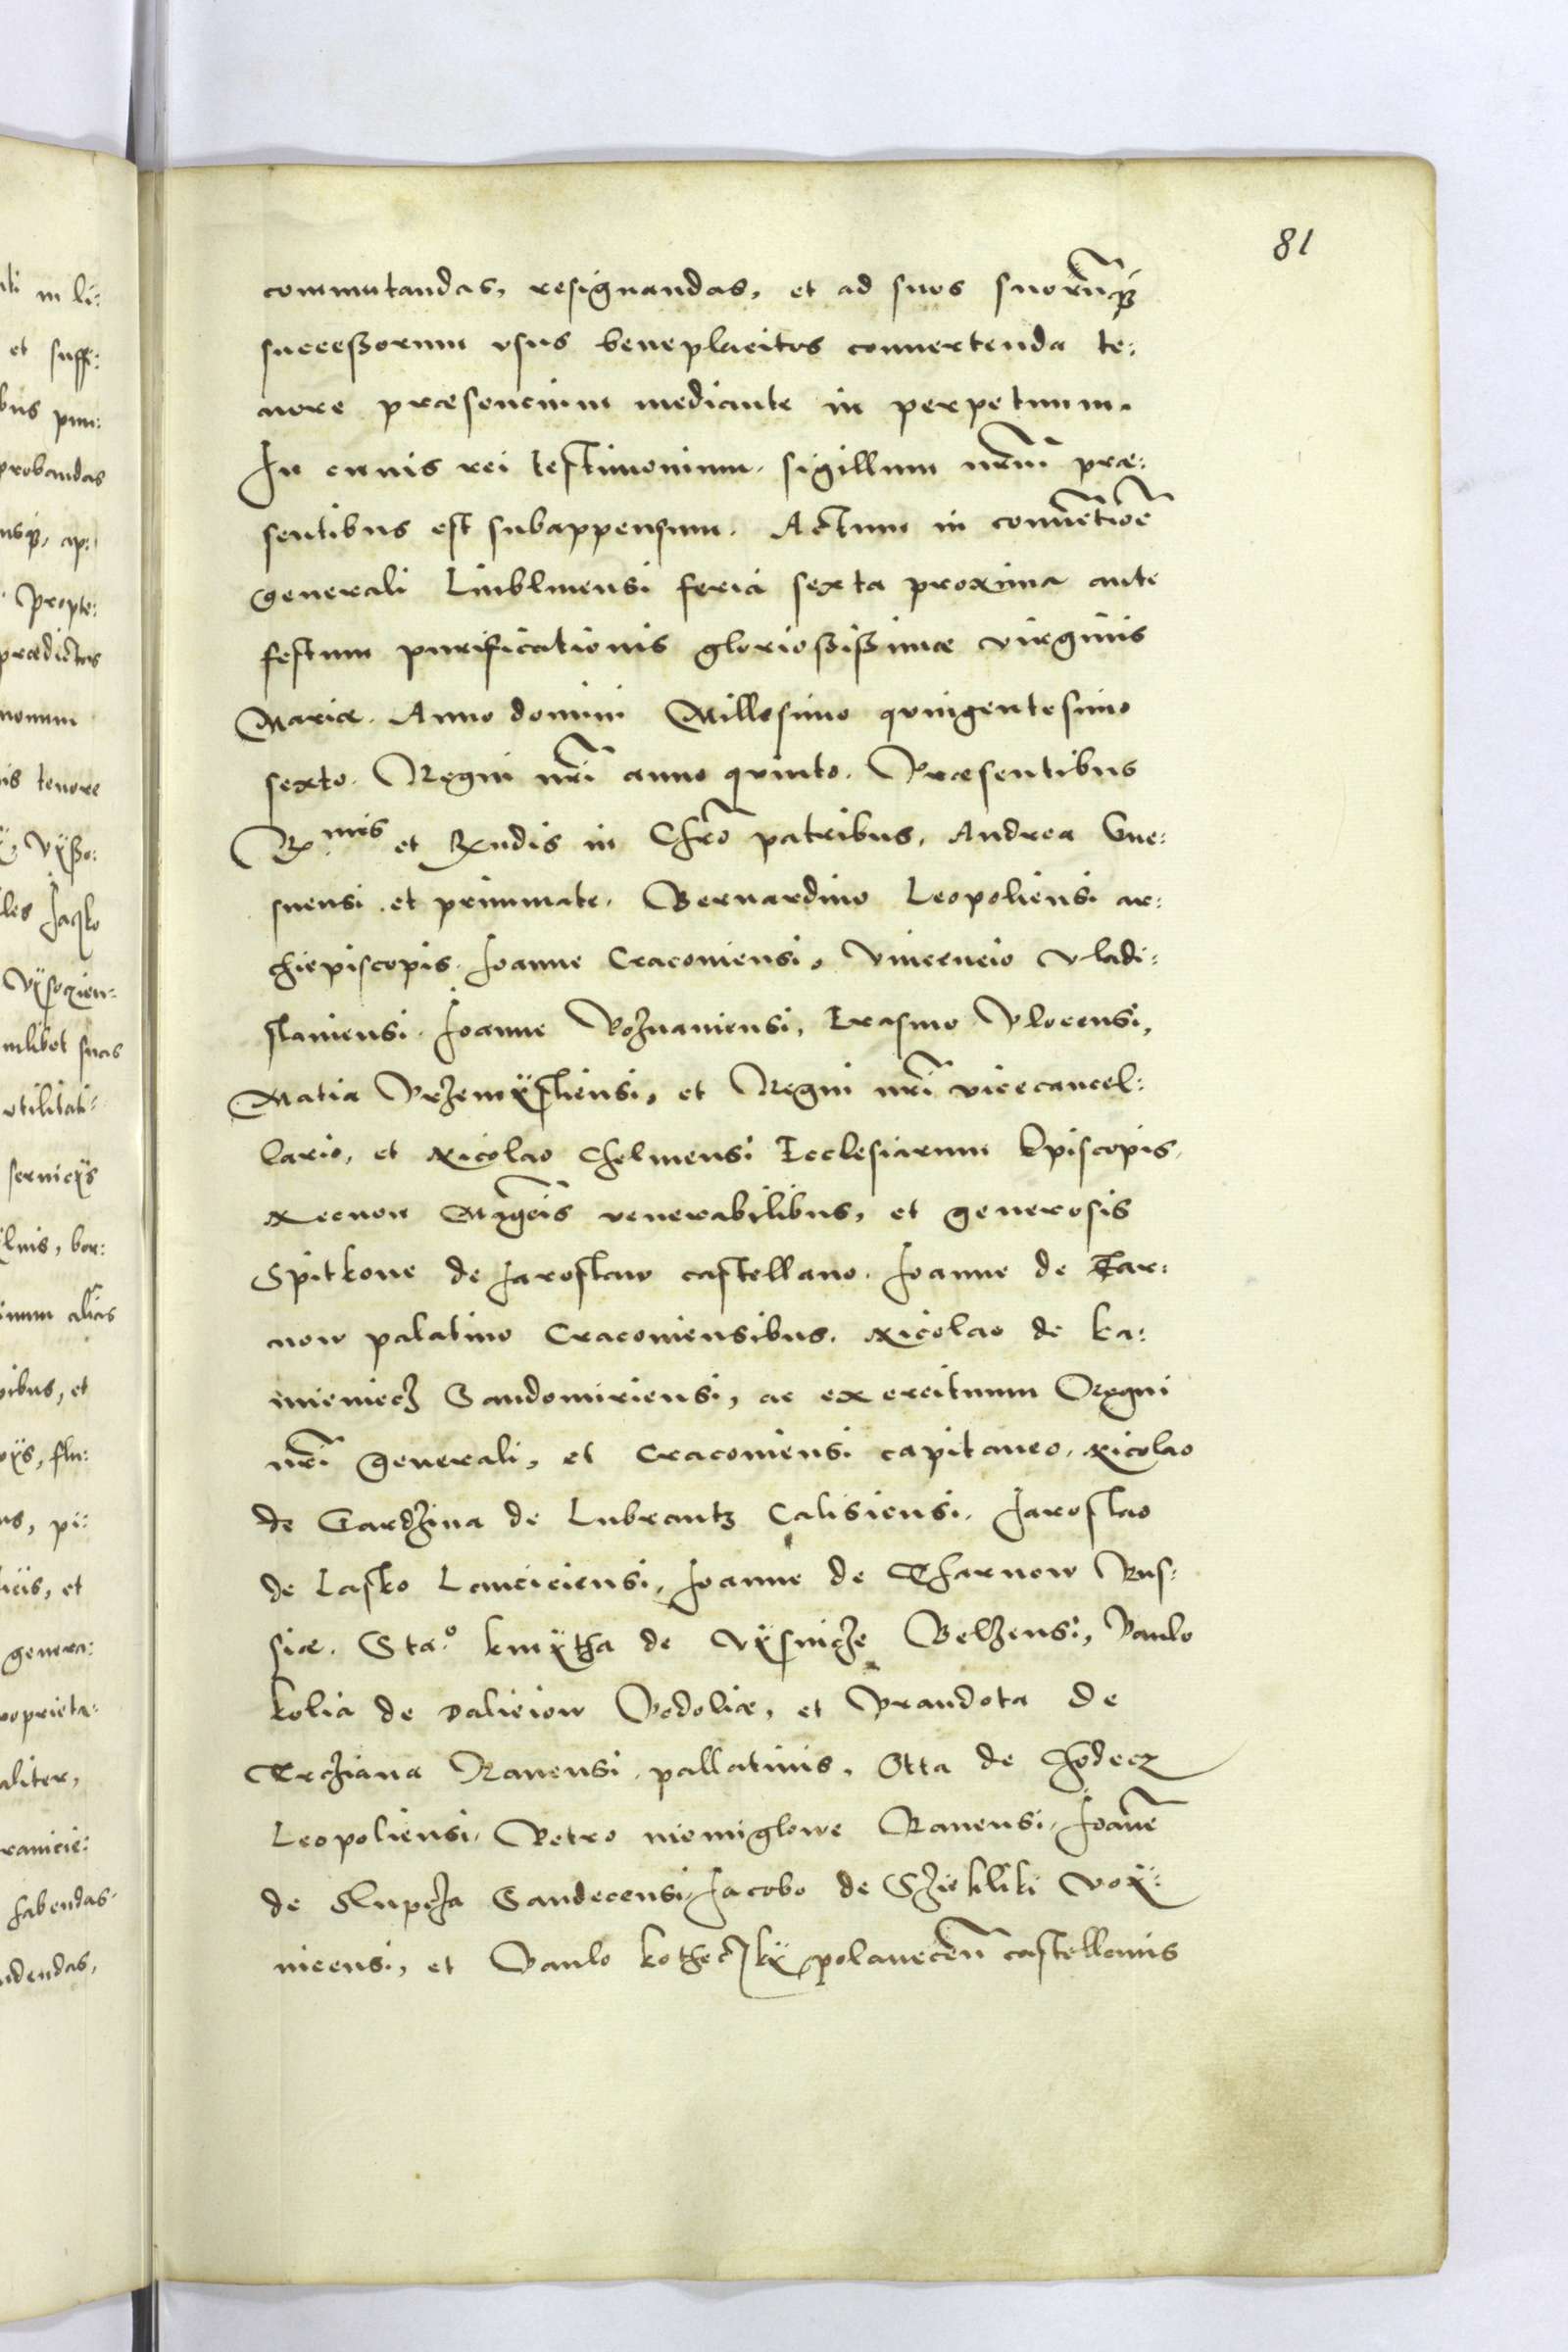 81
commutandas, resignandas, et ad suos suorũqȝ
successorum vsus beneplacitos conuertenda te:
nore præsencium mediante in perpetuum.
In cuius rei testimonium. sigillum nr̃m præ:
sentibus est subappensum. Actum in conuẽtiõe
generali Liublinensi feria sexta proxima ante
festum purificationis gloriossissimæ virginis
Mariæ. Anno domini Millesimo quingentesimo
sexto. Regni nr̃i anno quinto. Præsentibus
R.mis et Rxndis in Chr̃o patribus, Andrea Gne:
snensi et primmate. Bernardino Leopoliensi ar:
chiepiscopis. Joanne Cracouiensi, Vincencio Vladi:
slauiensi. Joanne Poznaniensi, Erasmo Plocensi,
Matia Przemÿsliensi, et Regni nr̃i vicecancel:
lario, et Nicolao Chelmensi Ecclesiarum Episcopis.
Necnon Mgc̃is venerabilibus, et generosis
Spitkone de Jaroslaw castellano. Joanne de Tar:
now palatino Cracouiensibus. Nicolao de Ka:
mieniecz Sandomiriensi, ac exercituum Regni
nr̃i generali, et Cracouiensi capitaneo. Nicolao
de Gardzina de Lubrantz Calisiensi. Jaroslao
de Lasko Lanciciensi, Joanne de Tharnow Rus:
siæ. Sta.o Kmÿtha de Vÿsnicze Belzensi, Paulo
Kolia de Daliejow Podoliæ, et Prandota de
Trcziana Rauensi pallatinis, Otta de Chodecz
Leopoliensi. Petro niemiglowe Rauensi. Joañe
de Slupcza Sandecensi, Jacobo de Sziekliki Voÿ:
nicensi, et Paulo Kotheczkÿ polanecen̄ castellanis
ili in li:
et suff:
bus pun:
probandas
usqȝ, ap:
propte:
prædictas
nonum
is tenore
Vÿsso:
les Jacsko
Vÿsoczien:
mlibet suas
vtilitati:
seruicÿs
luis, bor:
inum alias
ibus, et
ÿs, flu:
us, pi:
iciis, et
genera:
proprieta:
aliter,
ranicie:
habendas.
ndendas,